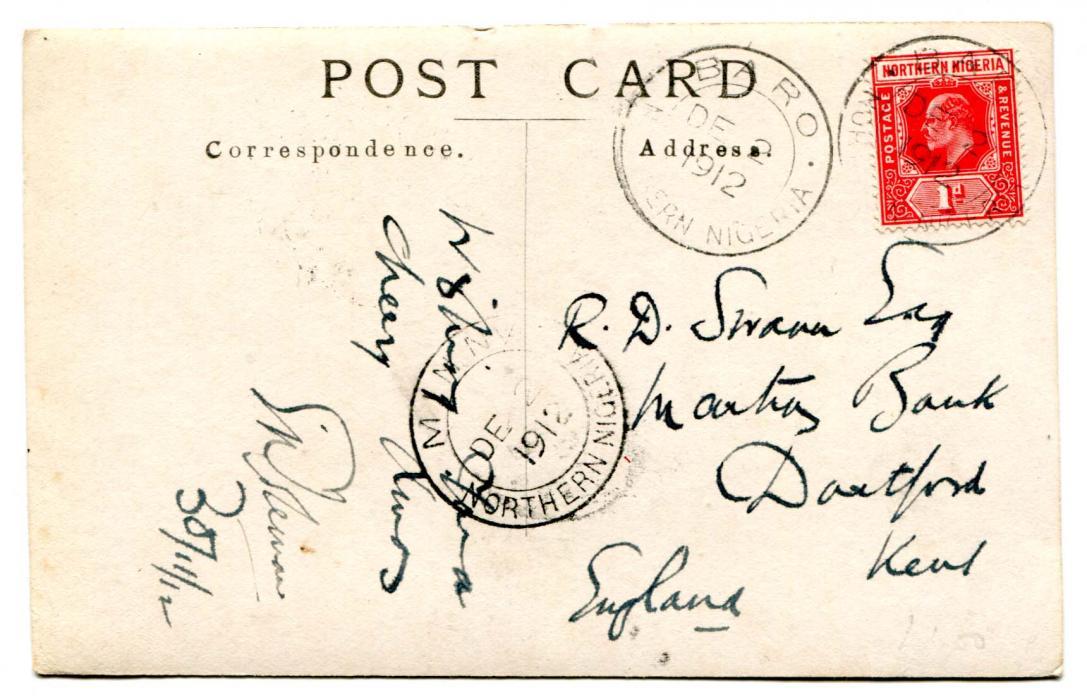 POST CARD
Correspondence.
Address.
BARO
DE 2
1912
NORTHERN NIGERIA
NORTHERN NIGERIA
POSTAGE
& REVENUE
1d
DE
1912
R. D. Swann Esq
Martins Bank
Dartford
Kent
England
Wishing you a
Cheery Xmas
30/11/12
MINNA
DE 2
1912
NORTHERN NIGERIA